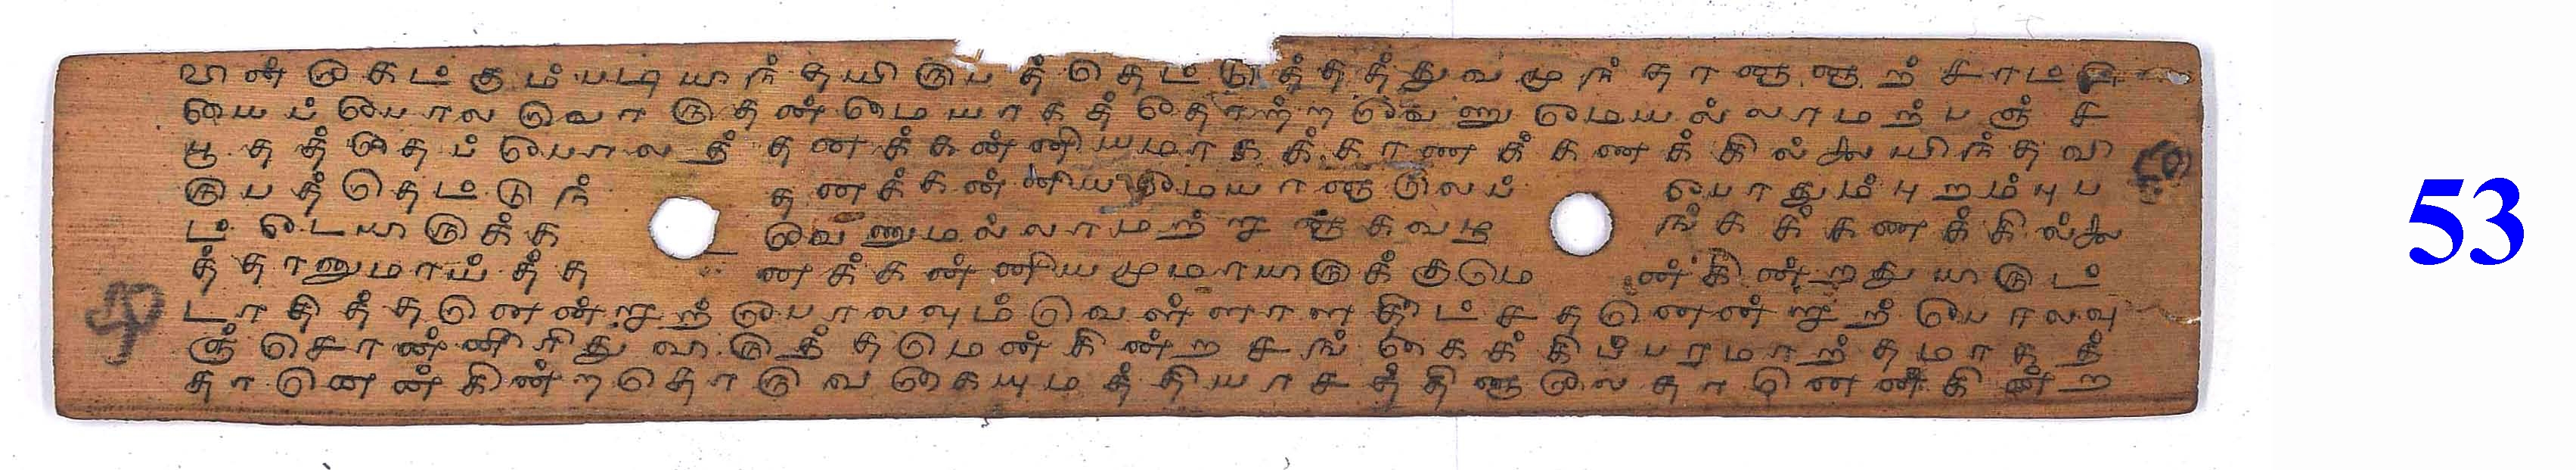 வான் முகட்கும்படியாந்தயிருபத்தெட்டுத்தத்துவமுந்தானாறுஞ் சாட்
யைப்போலவொருதன்மையாகத்தோற்றவேணுமேயல்லாமற்பஞ்ச
பூதத்தைப்போலத் தனக்கன்னியமாகக்காணக்கணக்கில்லையிந்தவி
ருபத்தெட்டுந் தனக்கன்னியமையானாலெப் போதும்புறம்புப
ட்டேயாருக்க வேணுமல்லாமற்றானங்கவழி ங்கக்கணக்கில்லை
த்தானுமாய்த்த னக்கன்னியமுமாயாருக்குமெ ன்கின்றதுயாருட்
டாகித்தனென்றாற்போலவும்வெள்ளாளகிட்சதனென்றாற்போலவு
ஞ்சொன்னரிதுவாருத்தமென்கின்றசங்கைக்கிப்பரமாற்தமாகத்
தானென்கின்றதொருவகையுமத்தியாசத்தினாலேதானென்கின்ற
53